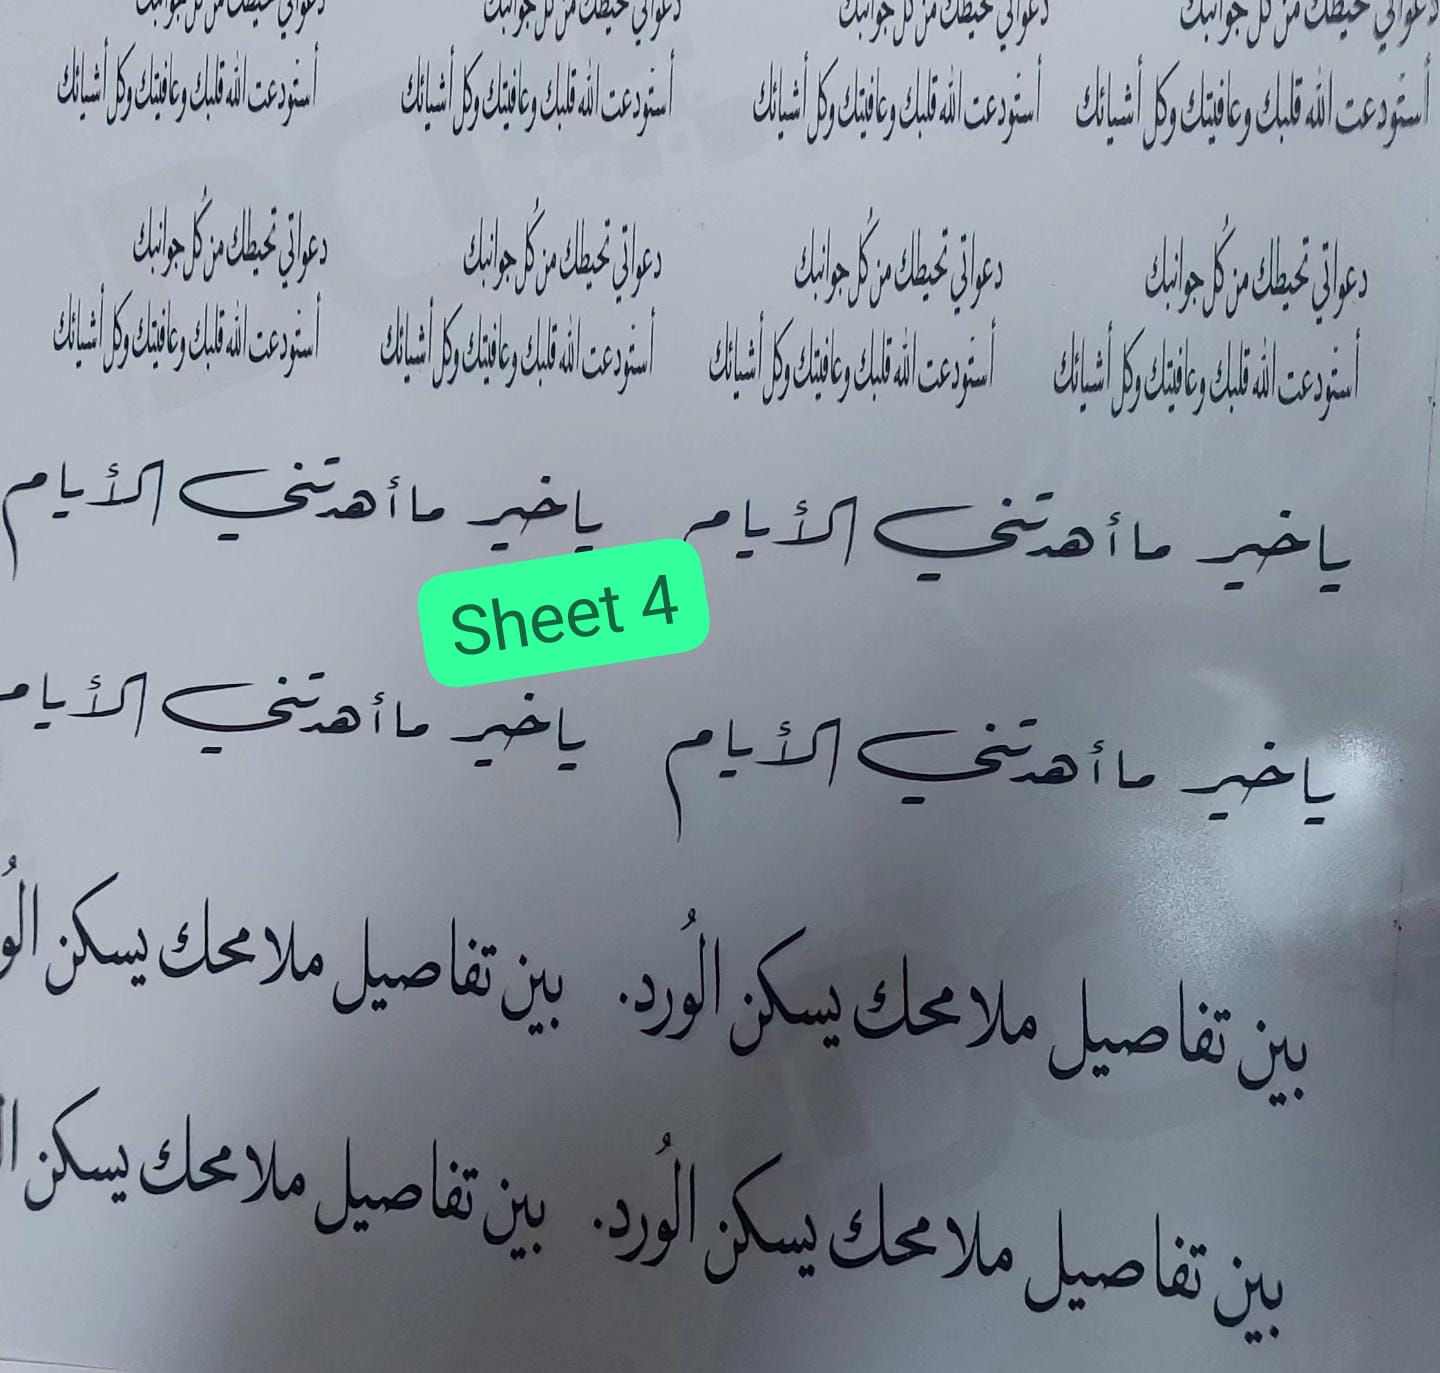 دعواتي تحيطك من كل جوانبك دعواتي تحيطك من كل جوانبك دعواتي تحيطك من كل جوانبك دعواتي تحيطك من كل جوانبك
أستودعت الله قلبك وعافيتك وكل أشيائك أستودعت الله قلبك وعافيتك وكل أشيائك أستودعت الله قلبك وعافيتك وكل أشيائك أستودعت الله قلبك وعافيتك وكل أشيائك
دعواتي تحيطك من كُل جوانبك دعواتي تحيطك من كُل جوانبك دعواتي تحيطك من كُل جوانبك دعواتي تحيطك من كُل جوانبك
أستودعت الله قلبك وعافيتك وكل أشيائك أستودعت الله قلبك وعافيتك وكل أشيائك أستودعت الله قلبك وعافيتك وكل أشيائك أستودعت الله قلبك وعافيتك وكل أشيائك
ياخير ما أهدتني الأيام ياخير ما أهدتني الأيام
Sheet 4
ياخير ما أهدتني الأيام ياخير ما أهدتني الأيام
بين تفاصيل ملامحك يسكن الُورد. بين تفاصيل ملامحك يسكن الُو
بين تفاصيل ملامحك يسكن الُورد. بين تفاصيل ملامحك يسكن